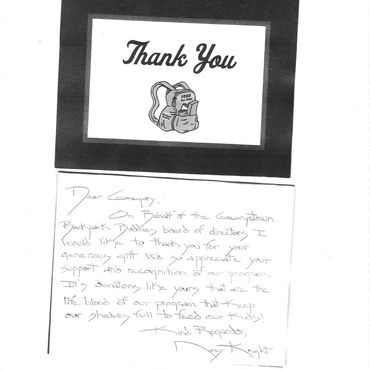 Thank You
FOOD
Dear Gregory,
On Behalf of the Georgetown
Backpack Buddies board of directors I
would like to thank you for your
generous gift We so appreciate your
support and recognition of our program.
It's donations like yours that are the
life blood of our program that keep
our shelves full to feed our kids!
Kind Regards,
Knight